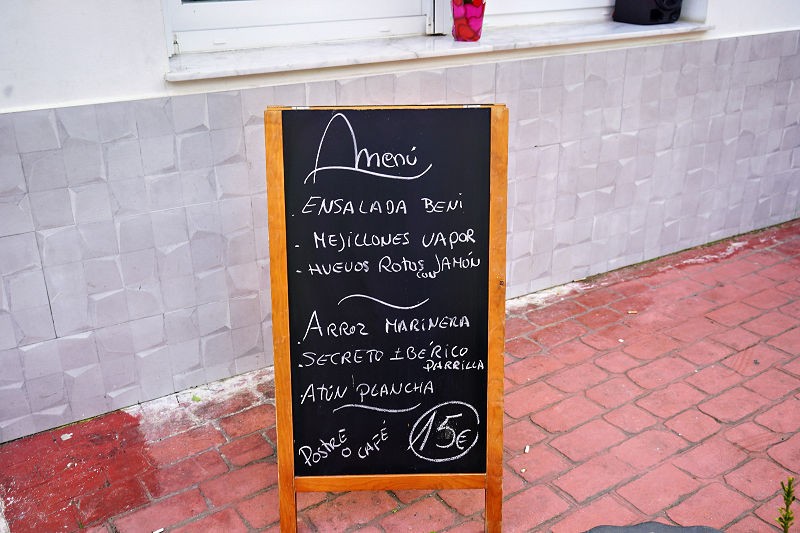 Menú
. ENSALADA BENi
- MEJILLONES VAPOR
- HUEVOS ROTOS CON JAMÓN
ARROZ MARINERA
. SECRETO IBÉRICO
PARRILLA
ATÚN PLANCHA
POSTRE O CAFÉ
15€